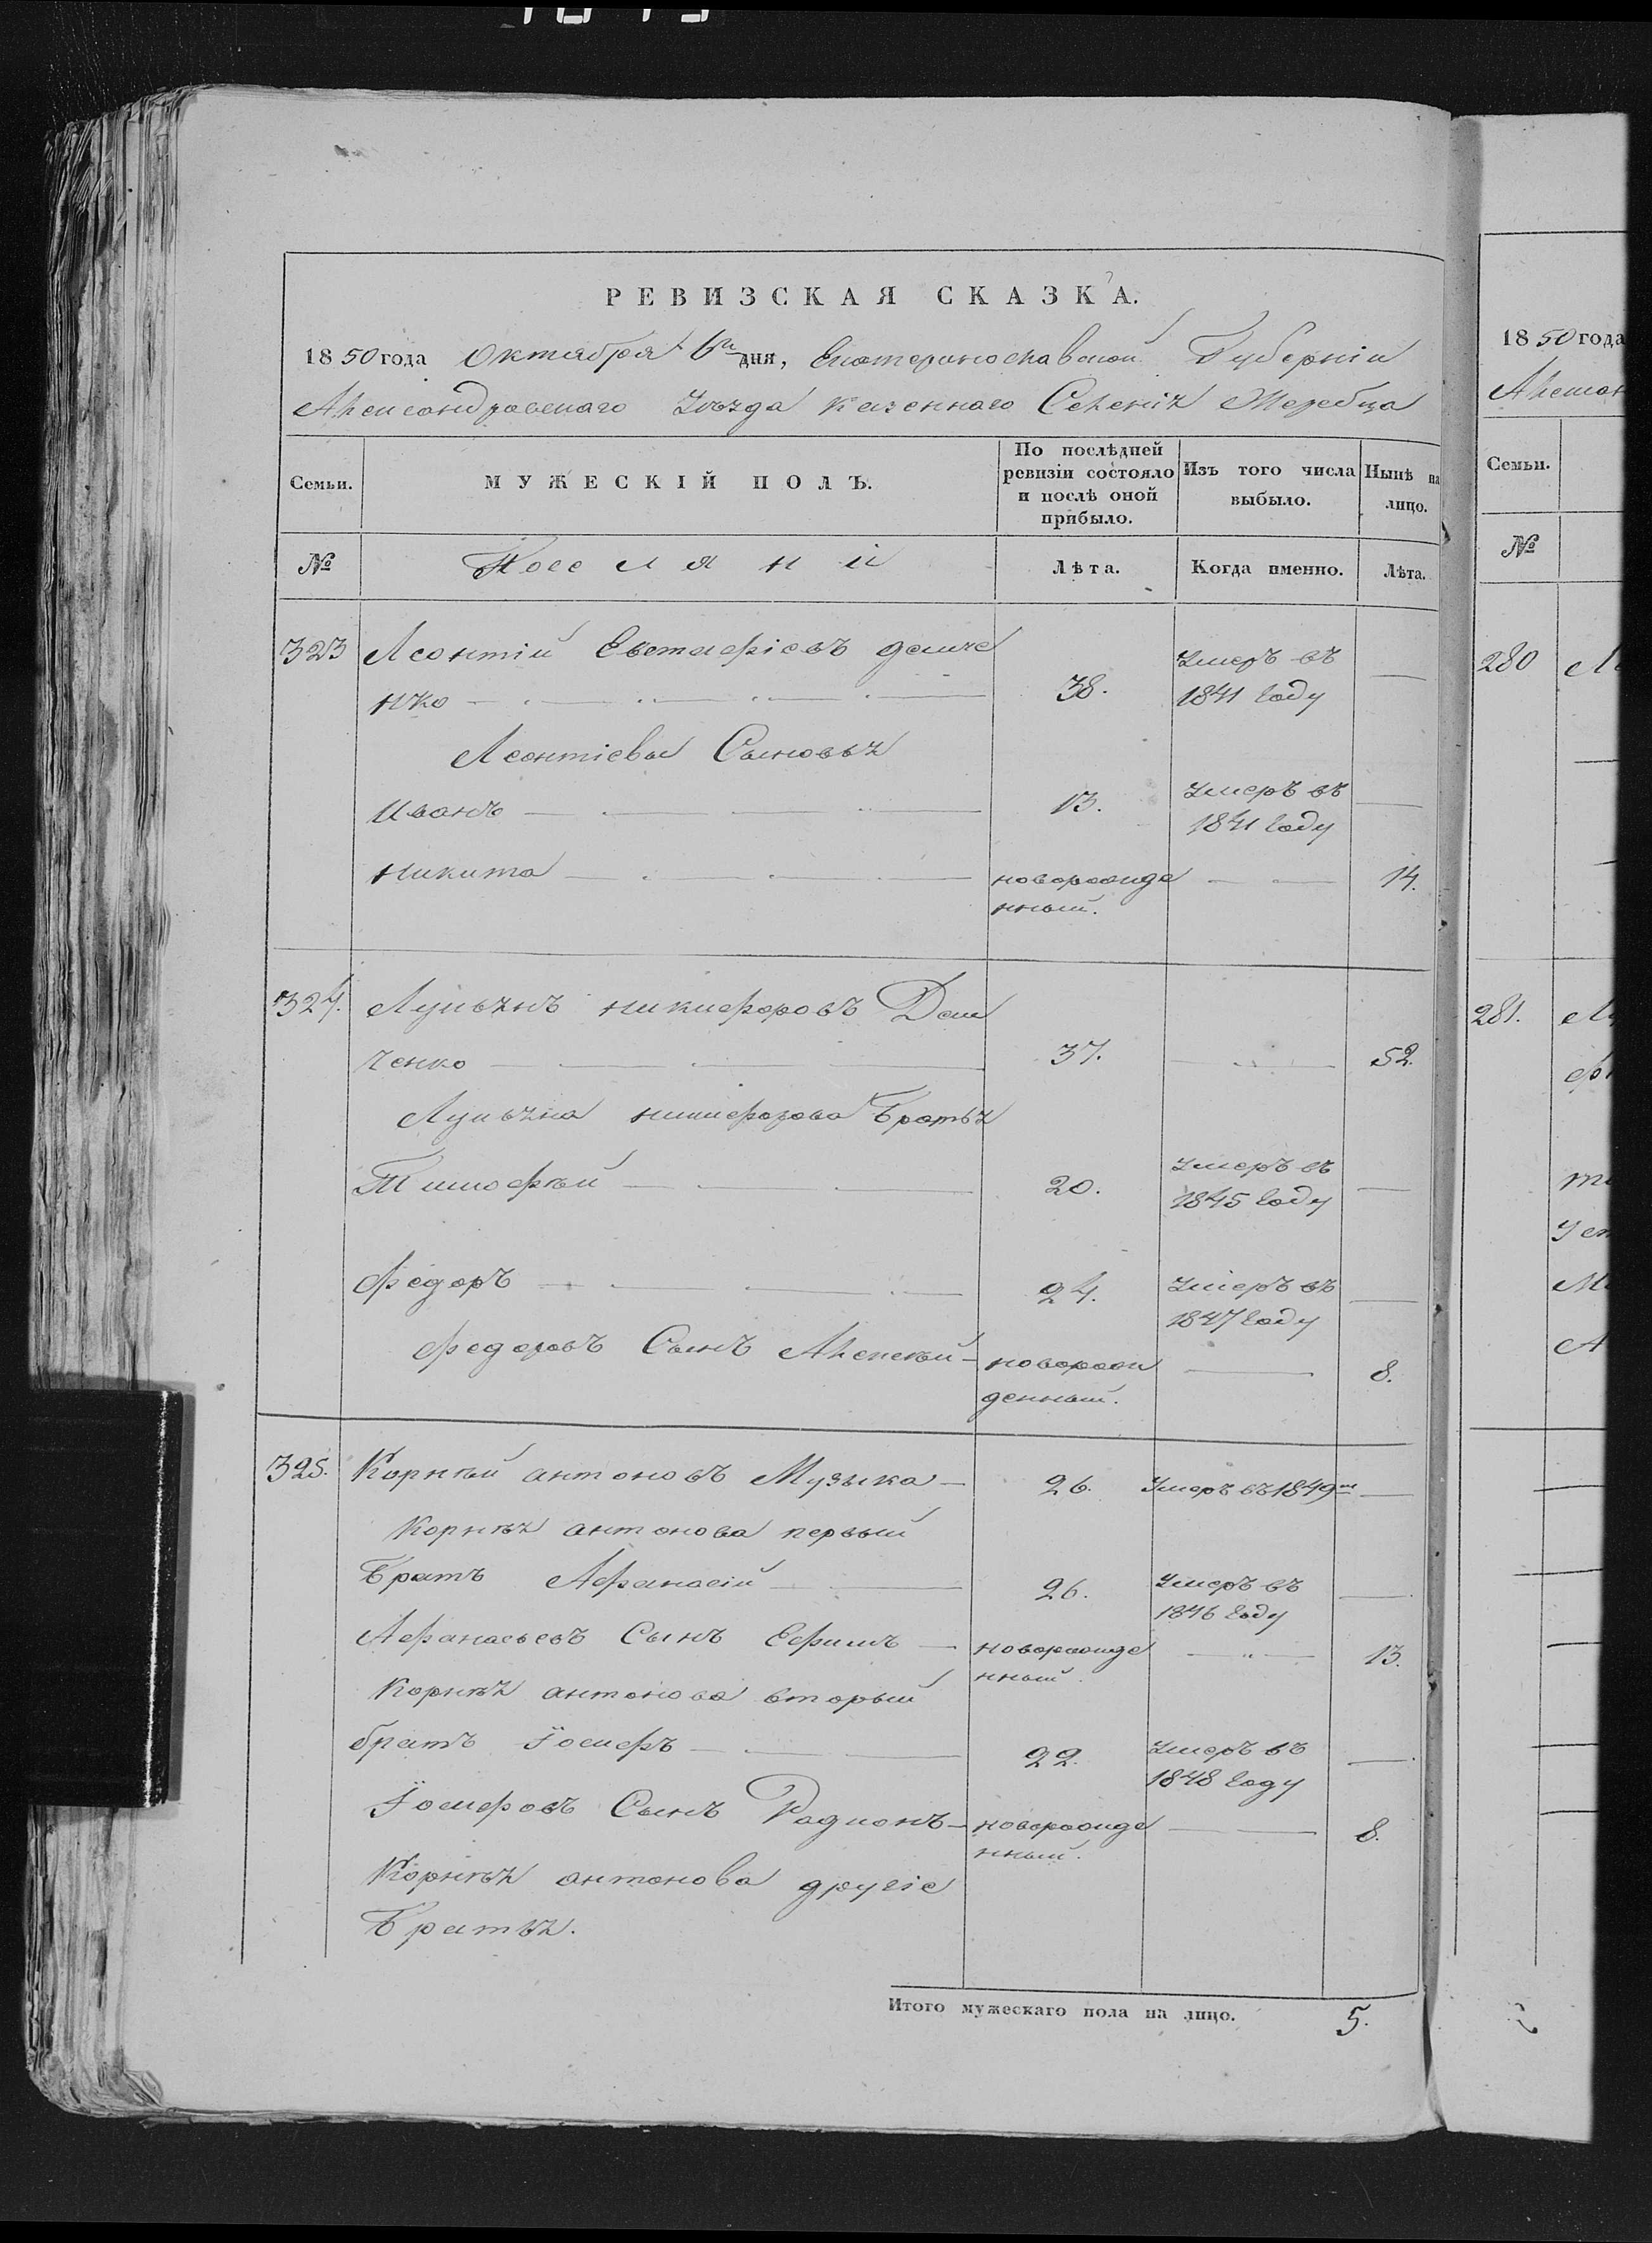 РЕВИЗСКАЯ СКАЗКА.
1850 года Октября 6го дня, Екатеринославской Губерніи
Александровскаго Уѣзда казеннаго Селенія Жеребца
Семьи.
МУЖЕСКІЙ ПОЛЪ.
По послѣдней ревизіи состояло и послѣ оной прибыло.
Изъ того числа выбыло.
Нынѣ на лицо.
№
Поселяни
Лѣта.
Когда именно.
Лѣта.
323 Леонтій Евстафіевъ демче
нко 38. Умеръ въ 1841 году
Леонтіевы Сыновья
Иванъ 13. Умеръ въ 1841 году
Никита новорожденный. 14.
324. Лукьянъ никифоровъ Дем
ченко 37. 52.
Лукьяна никифорова Братья
Тимофѣй 20. Умеръ въ 1845 году
Федоръ 24. Умеръ въ 1847 году
Федоровъ Сынъ Алексѣй новорожденный. 8.
325. Корнѣй антоновъ Музыка 26. Умеръ въ 1849м
Корнѣя антонова первый
Братъ Афанасій 26. Умеръ въ 1846 году
Афанасьевъ Сынъ Ефимъ новорожденный. 13.
Корнѣя антонова вторый
братъ Іосифъ 22. Умеръ въ 1848 году
Іосифовъ Сынъ Радионъ новорожденный. 8.
Корнѣя антонова другіе
Братья.
Итого мужескаго пола на лицо. 5.
1850 года
Семьи.
№
280
281.